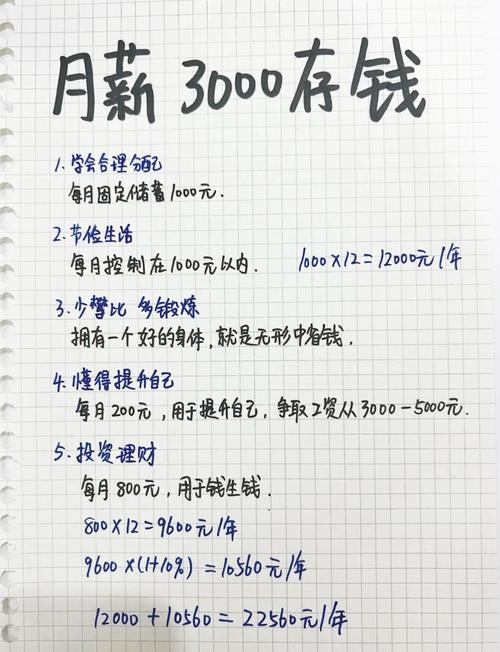 月薪 3000存钱
1. 学会合理分配
每月固定储蓄1000元.
2. 节俭生活
每月控制在1000元以内. 1000×12=12000元/年
3. 少攀比 多锻炼
拥有一个好的身体,就是无形中省钱.
4. 懂得提升自己
每月200元,用于提升自己,争取工资从3000-5000元.
5. 投资理财
每月800元,用于钱生钱.
800×12=9600元/年
9600×(1+10%)=10560元/年
12000+10560=22560元/年